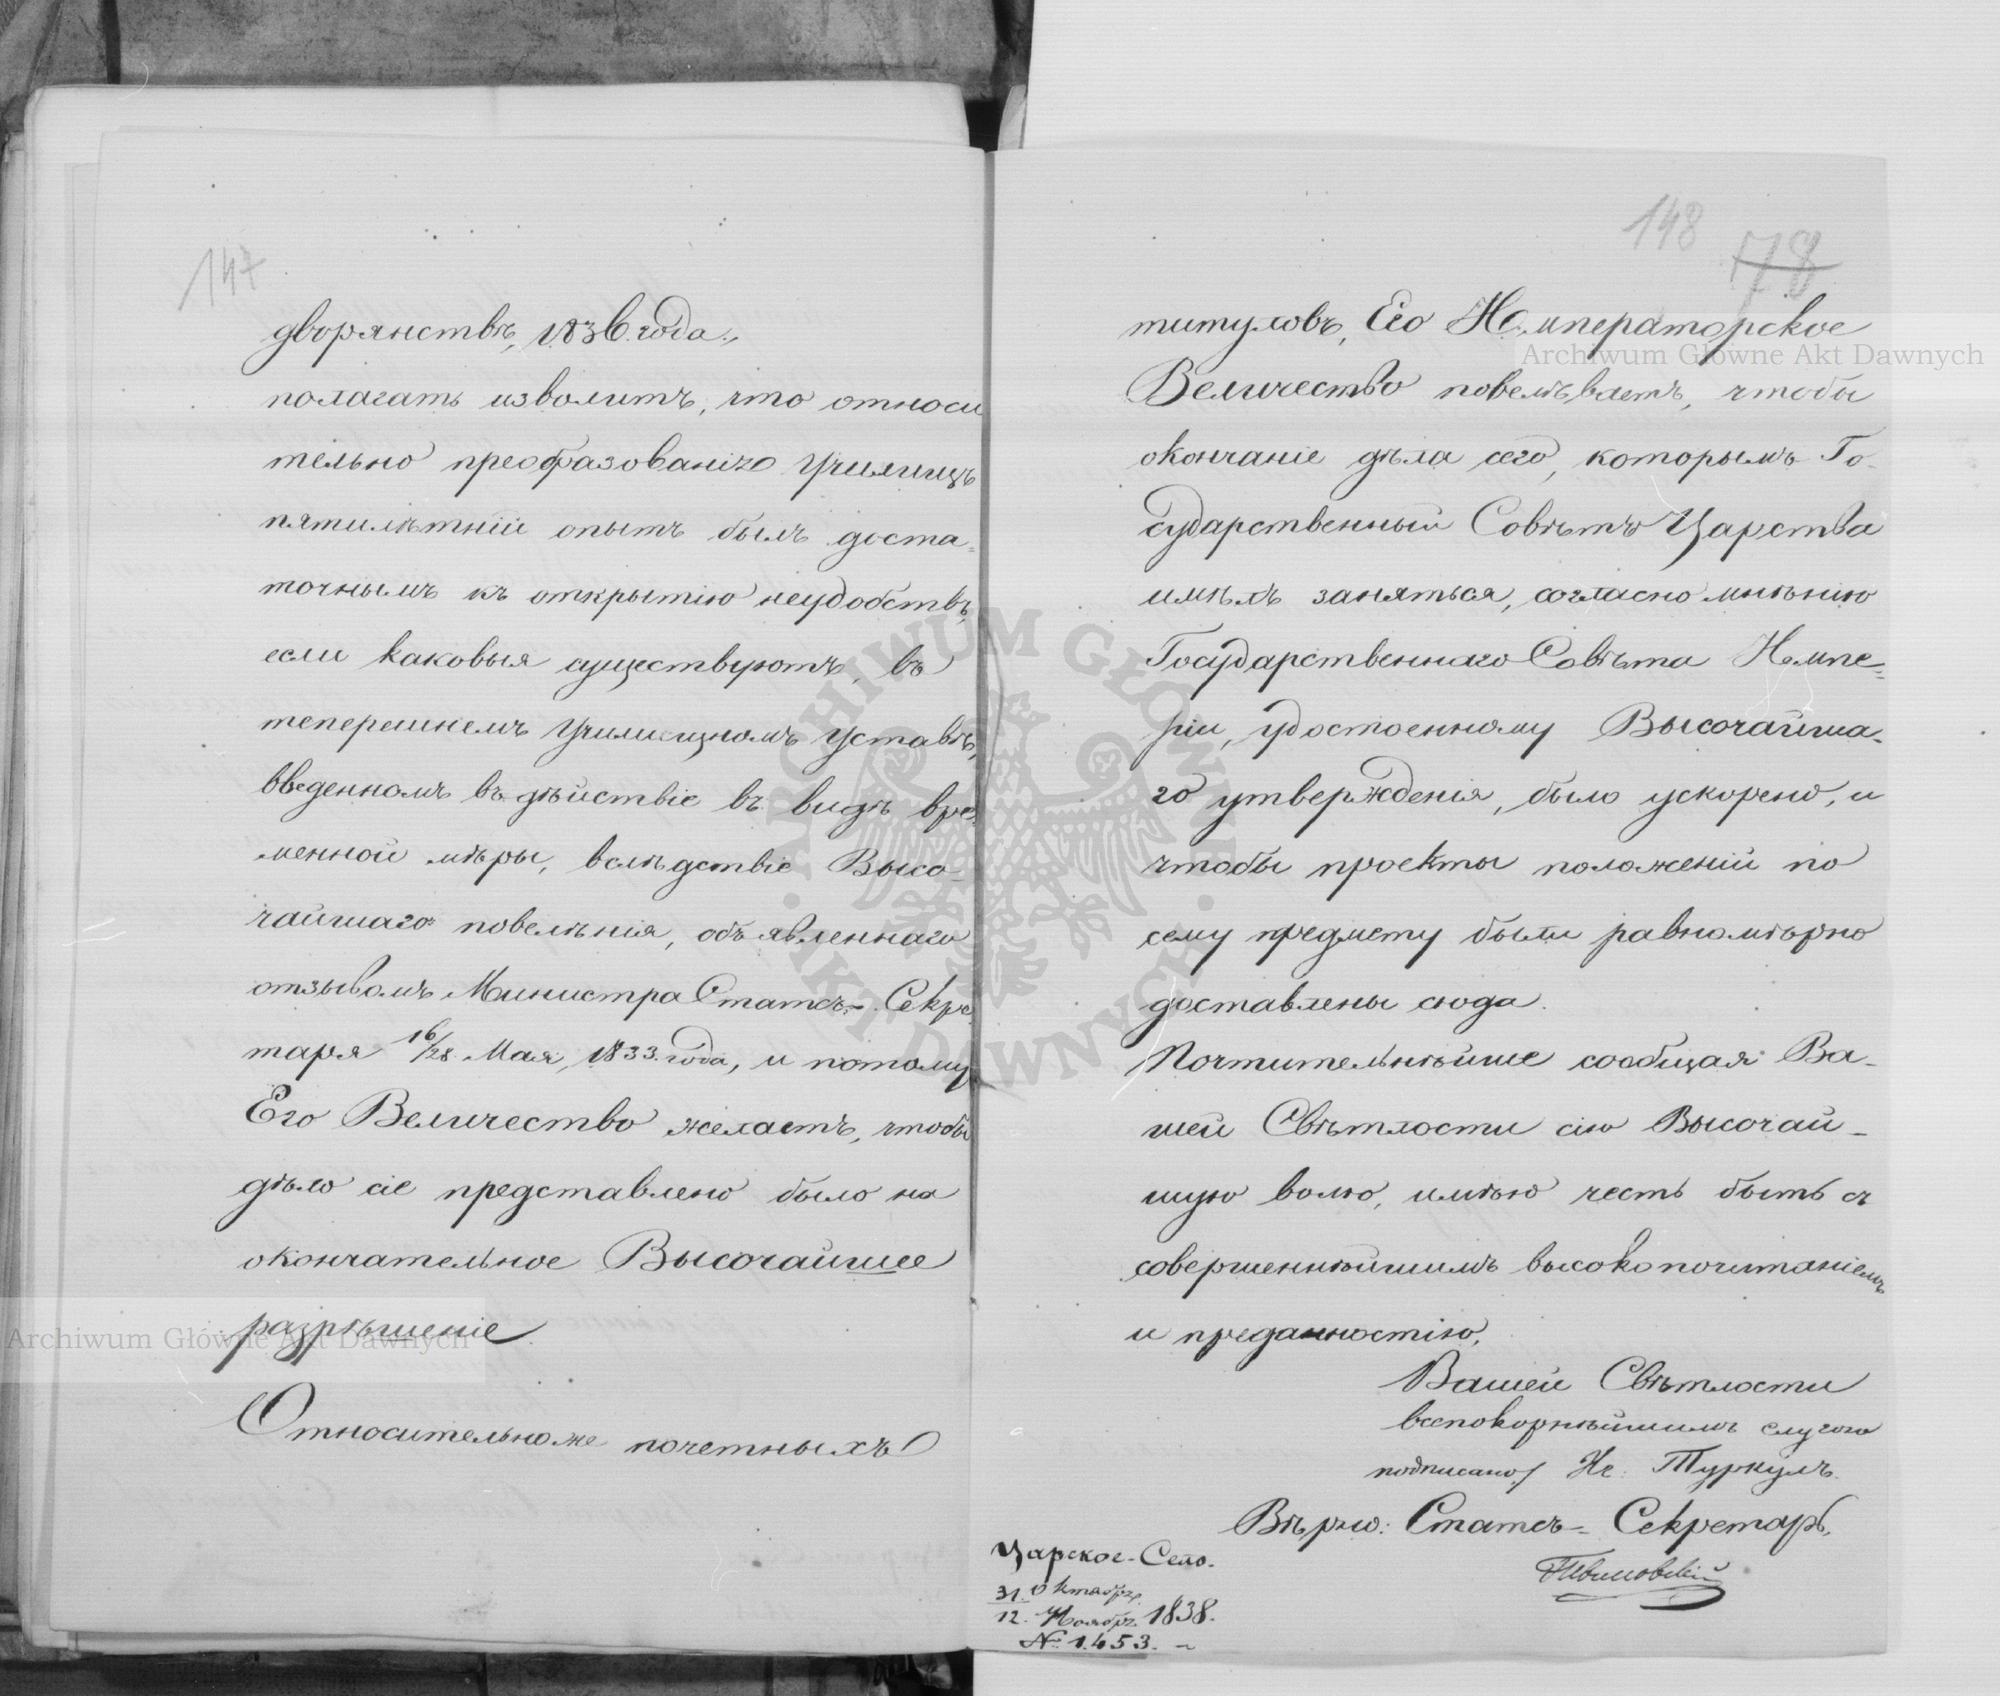 147
дворянствѣ, 1836. года.,
полагать изволитъ, что относи
тельно преобразованію Училищъ
пятилѣтній опытъ былъ доста=
точнымъ къ открытію неудобствъ,
если каковыя существуютъ, въ
теперешнемъ Училищномъ Уставѣ,
введенномъ въ дѣйствіе въ видѣ вре-
менной мѣры, вслѣдствіе Высо-
чайшаго повелѣнія, объявленнаго
отзывомъ Министра Статсъ-Секре
таря 16/28. Мая, 1833. года, и потому
Его Величество желаетъ, чтобы
дѣло сіе представлено было на
окончательное Высочайшее
разрѣшеніе.
Относительно же почетныхъ
148
78
титуловъ, Его Императорское
Величество повелѣваетъ, чтобы
окончаніе дѣла сего, которымъ Го-
сударственный Совѣтъ Царства
имѣлъ заняться, согласно мнѣнію
Государственнаго Совѣта Импе=
ріи, удостоенному Высочайша-
го утвержденія, было ускорено, и
чтобы проекты положеній по
сему предмету были равномѣрно
доставлены сюда.
Почтительнѣйше сообщая Ва-
шей Свѣтлости сію Высочай-
шую волю, имѣю честь быть съ
совершеннѣйшимъ высокопочитаніемъ
и преданностію,
Вашей Свѣтлости
всепокорнѣйшимъ слугою
подписано/ Иг: Туркулъ.
Вѣрно: Статсъ-Секретарь,
Царское-Село.
31. Октября.
12. Ноябр. 1838.
№ 1.453.
Archiwum Główne Akt Dawnych
Archiwum Główne Akt Dawnych
ARCHIWUM GŁÓWNE
AKT DAWNYCH